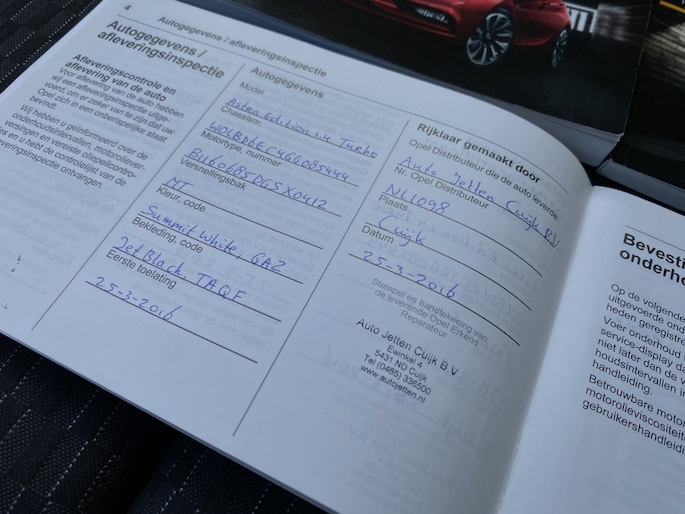 4
Autogegevens / afleveringsinspectie
Autogegevens /
afleveringsinspectie
Afleveringscontrole en
aflevering van de auto
Voor aflevering van de auto hebben
wij een afleveringsinspectie uitge-
voerd, om er zeker van te zijn dat uw
Opel zich in een onberispelijke staat
bevindt.
Wij hebben u geïnformeerd over de
onderhoudsintervallen, motorolie
versingen en vereiste oliepeilcontro-
les en u hebt de controlelijst van de
afleveringsinspectie ontvangen.
Autogegevens
Model
Astra Edition 1.4 Turbo
Chassisnr.
Motortype, nummer
Versnellingsbak
MT
Kleur, code
Summit White, GAZ
Bekleding, code
Jet Black, TAQF
Eerste toelating
25-3-2016
Rijklaar gemaakt door
Opel Distributeur die de auto leverde
Auto Jetten Cuijk B.V.
Nr. Opel Distributeur
NL1098
Plaats
Cuijk
Datum
25-3-2016
Stempel en handtekening van
de leverende Opel Erkend
Reparateur
Auto Jetten Cuijk B.V.
Ewinkel 4
5431 ND Cuijk
Tel (0485) 336500
www.autojetten.nl
Bevesti
onderho
Op de volgende
uitgevoerde ond
heden geregistre
Voer onderhoud
service-display da
niet later dan de v
houdsintervallen in
handleiding.
Betrouwbare motor
motorolieviscositeit
gebruikershandleidi